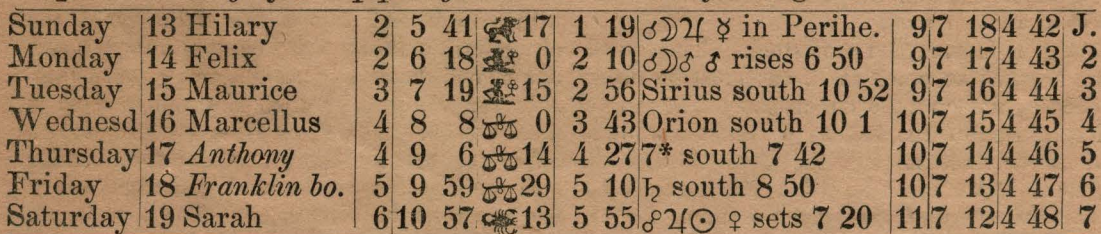 Sunday 13 Hilary 2 5 41 ♌ 17 1 19 ☌☽♃ ☿ in Perihe. 9 7 18 4 42 J.
Monday 14 Felix 2 6 18 ♍ 0 2 10 ☌☽♂ ♂ rises 6 50 9 7 17 4 43 2
Tuesday 15 Maurice 3 7 19 ♍ 15 2 56 Sirius south 10 52 9 7 16 4 44 3
Wednesd 16 Marcellus 4 8 8 ♎ 0 3 43 Orion south 10 1 10 7 15 4 45 4
Thursday 17 Anthony 4 9 6 ♎ 14 4 27 7* south 7 42 10 7 14 4 46 5
Friday 18 Franklin bo. 5 9 59 ♎ 29 5 10 ♄ south 8 50 10 7 13 4 47 6
Saturday 19 Sarah 6 10 57 ♏ 13 5 55 ☍♃☉ ♀ sets 7 20 11 7 12 4 48 7